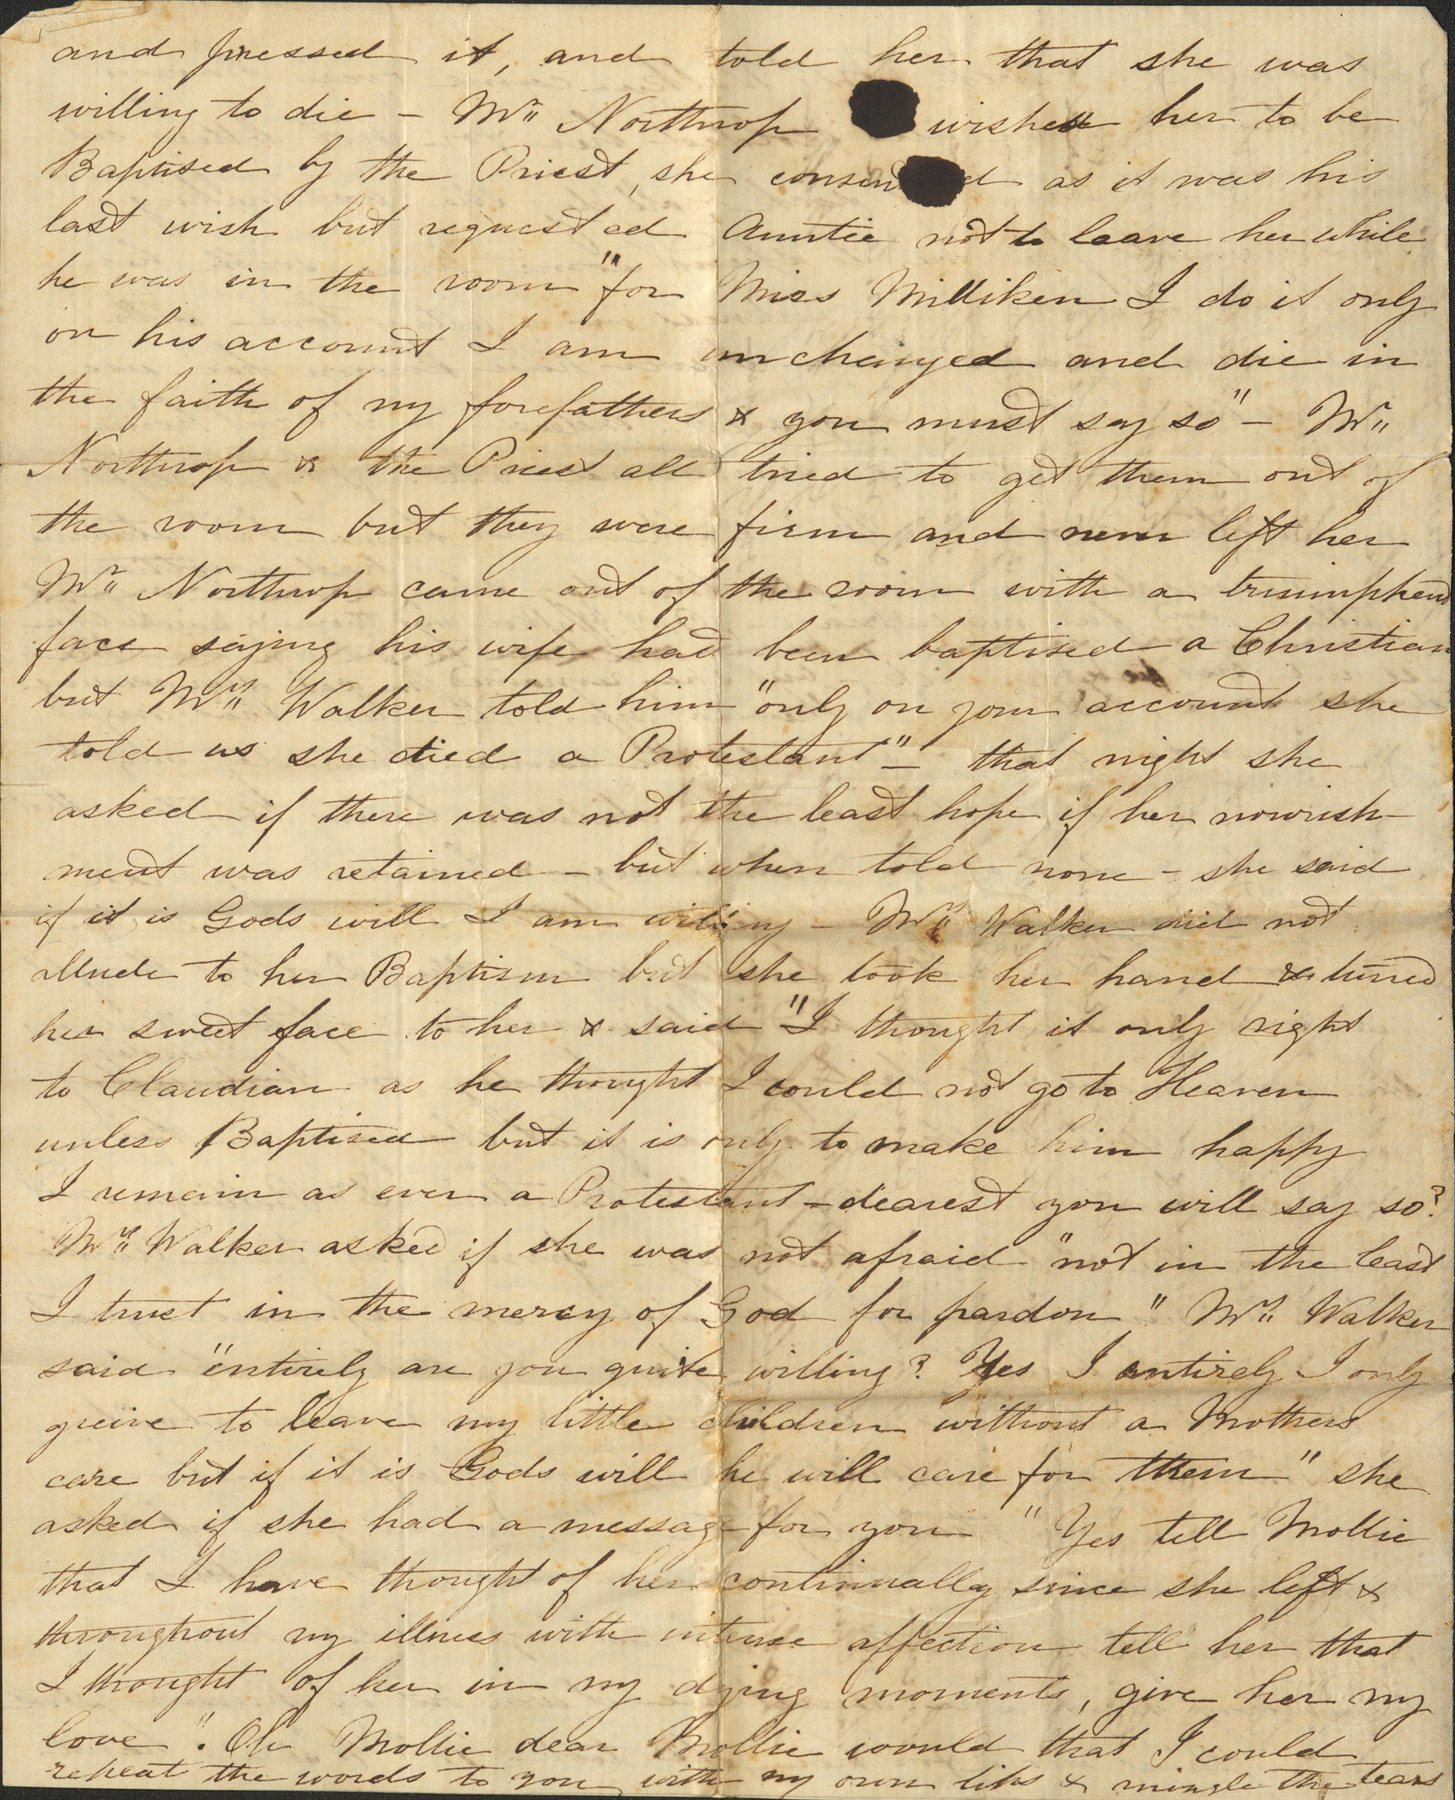 and pressed it, and told her that she was
willing to die – Mr. Northrop wished her to be
Baptised by the Priest, she consented as it was his
last wish but requested Auntie not to leave her while
he was in the room "for Miss Milliken I do it only
on his account I am unchanged and die in
the faith of my forefathers & you must say so" – Mr.
Northrop & the Priest all tried to get them out of
the room but they were firm and never left her
Mr. Northrop came out of the room with a triumphend
face saying his wife had been baptised a Christian
but Mrs. Walker told him "only on your account she
told us she died a Protestant" – that night she
asked if there was not the least hope if her nourish-
ment was retained – but when told none – she said
if it is Gods will I am willing – Mrs. Walker did not
allude to her Baptism but she took her hand & turned
her sweet face to her & said "I thought it only right
to Claudian as he thought I could not go to Heaven
unless Baptised but it is only to make him happy
I remain as ever a Protestant – dearest you will say so?
Mrs. Walker asked if she was not afraid "not in the least
I trust in the mercy of God for pardon" Mrs. Walker
said "entirely are you quite willing? Yes I entirely I only
greive to leave my little children without a Mothers
care but if it is Gods will he will care for them" she
asked if she had a message for you "Yes tell Mollie
that I have thought of her continually since she left &
throughout my illness with intense affection tell her that
I thought of her in my dying moments, give her my
love". Oh Mollie dear Mollie would that I could
repeat the words to you with my own lips & mingle the tears